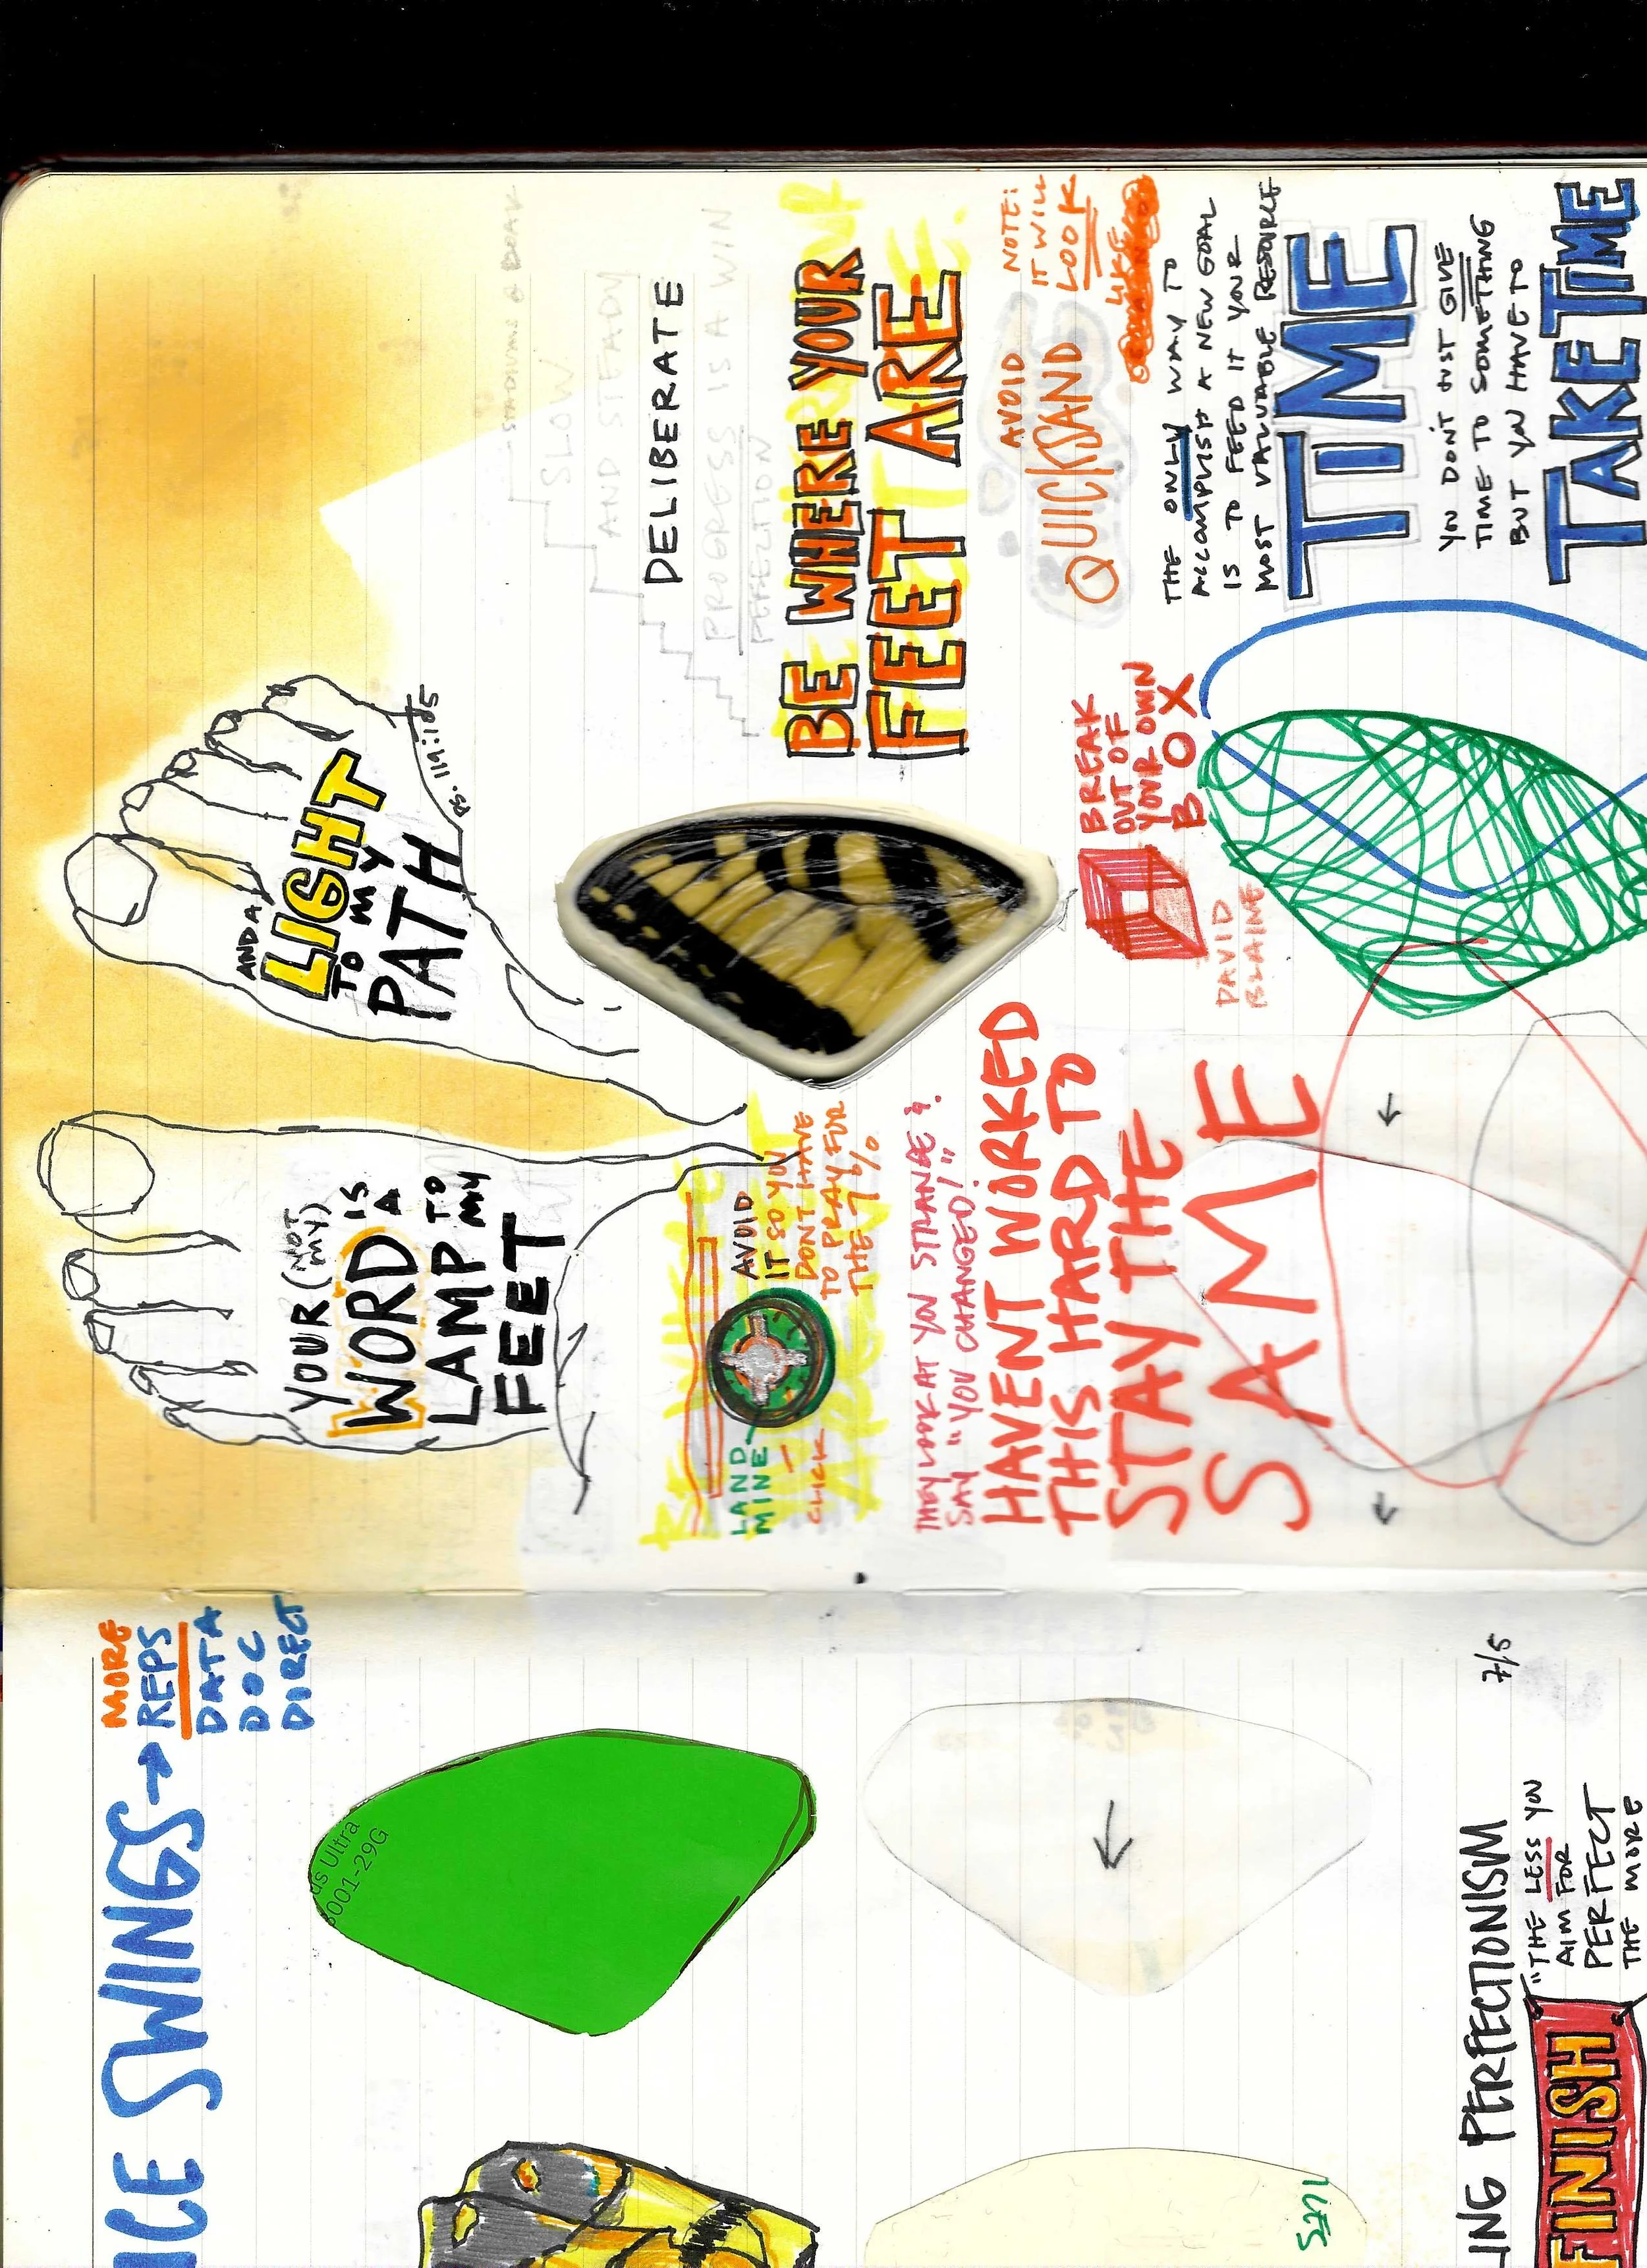 YOUR (NOT MY)
WORD IS
A
LAMP TO
MY
FEET
AND A
LIGHT
TO MY
PATH
PS. 119:105
SLOW
AND STEADY
DELIBERATE
PROGRESS IS A WIN
BE WHERE YOUR
FEET ARE
LAND
MINE
CLICK
AVOID
IT SO YOU
DONT HAVE
TO PRAY FOR
THE 1%
NOTE:
IT WILL
LOOK
LIKE
AVOID
QUICKSAND
THEY LOOK AT YOU STRANGE &
SAY "YOU CHANGED!"
HAVENT WORKED
THIS HARD TO
STAY THE
SAME
BREAK
OUT OF
YOUR OWN
BOX
DAVID
BLAINE
THE ONLY WAY TO
ACCOMPLISH A NEW GOAL
IS TO FEED IT YOUR
MOST VALUABLE RESOURCE
TIME
YOU DON'T JUST GIVE
TIME TO SOMETHING
BUT YOU HAVE TO
TAKE TIME
ICE SWINGS → MORE
REPS
DATA
DOC
DIRECT
us Ultra
8001-29G
7/5
ING PERFECTIONISM
"THE LESS YOU
AIM FOR
PERFECT
THE MORE
FINISH